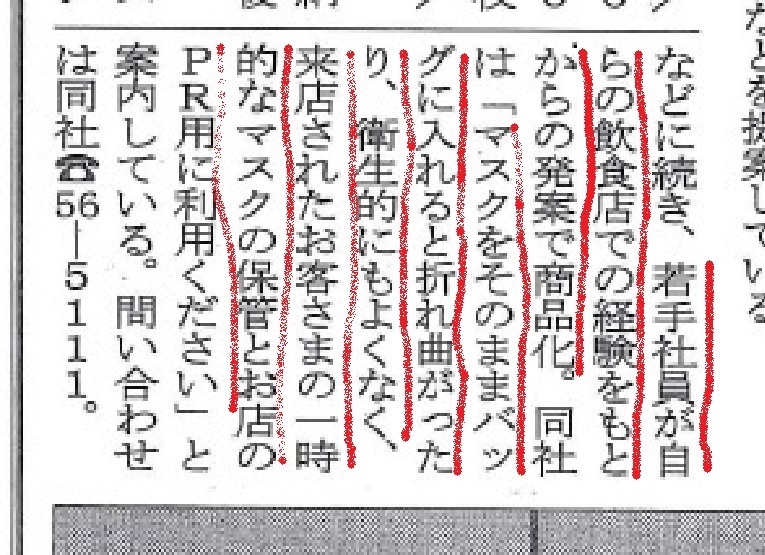 などを提案している
などに続き、若手社員が自
らの飲食店での経験をもと
からの発案で商品化。同社
は「マスクをそのままバッ
グに入れると折れ曲がった
り、衛生的にもよくなく、
来店されたお客さまの一時
的なマスクの保管とお店の
PR用に利用ください」と
案内している。問い合わせ
は同社☎56―5111。